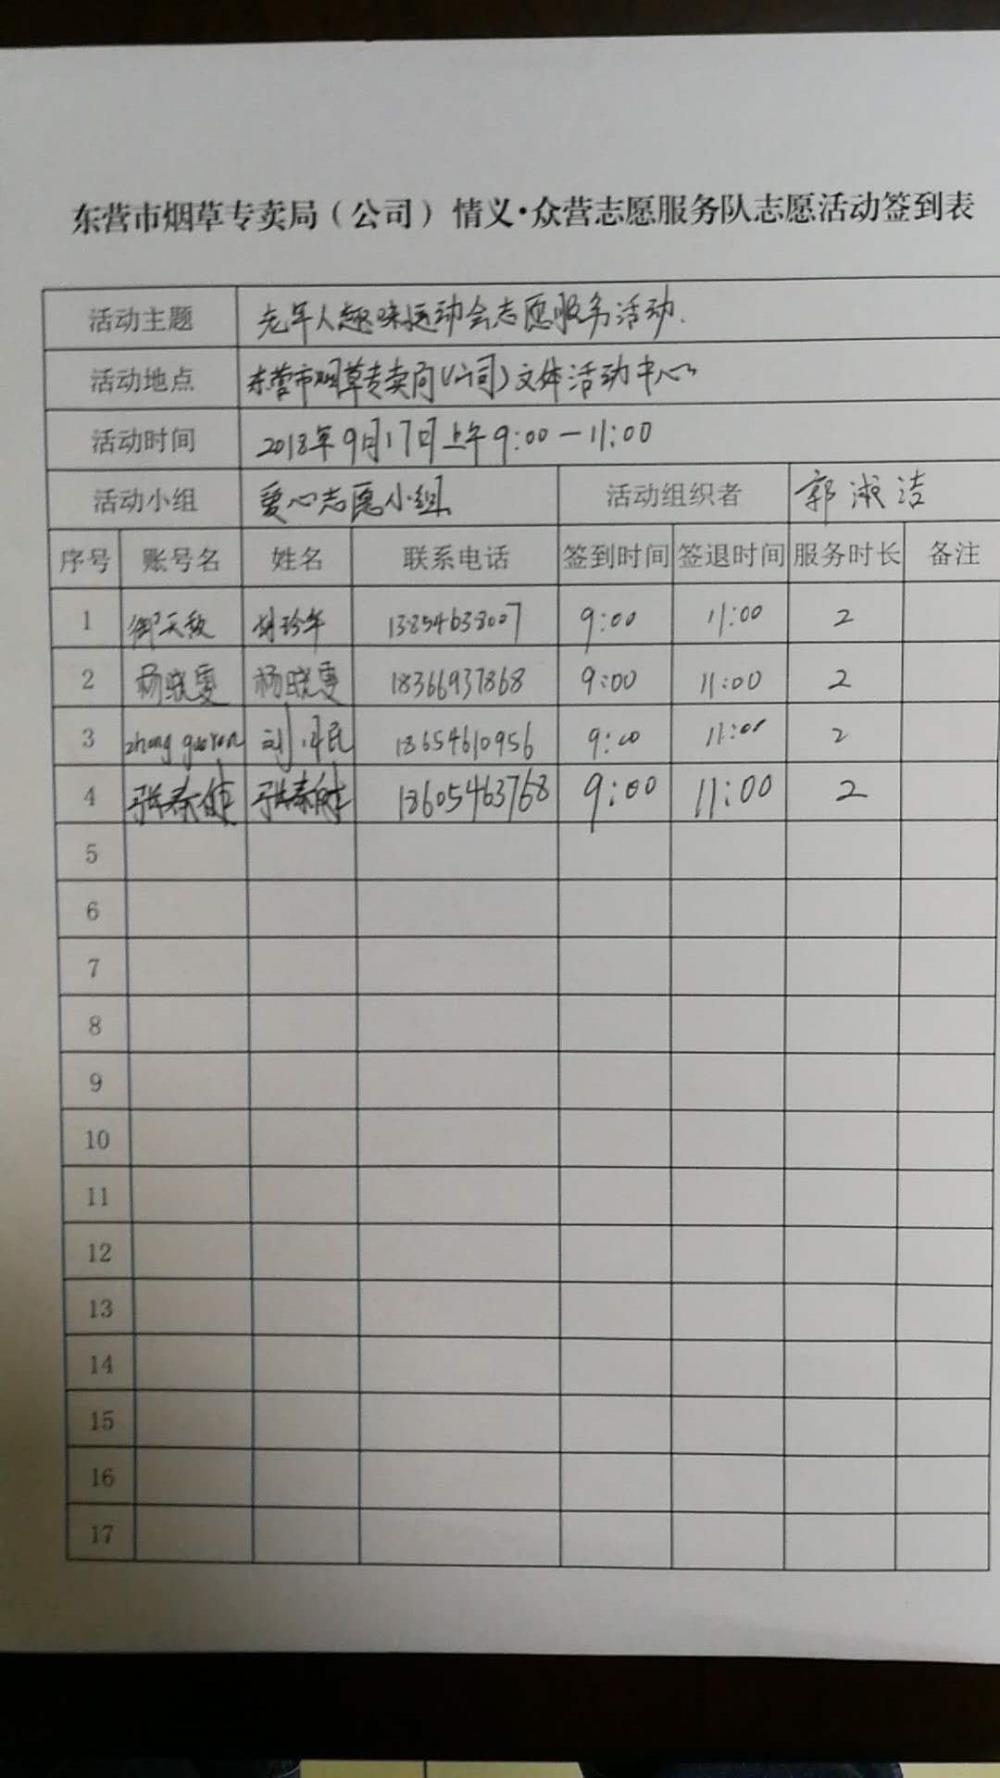 东营市烟草专卖局（公司）情义·众营志愿服务队志愿活动签到表
活动主题 老年人趣味运动会志愿服务活动.
活动地点 东营市烟草专卖局(公司)文体活动中心
活动时间 2018年9月17日上午9:00-11:00
活动小组 爱心志愿小组 活动组织者 郭淑洁
序号 账号名 姓名 联系电话 签到时间 签退时间 服务时长 备注
1 13854638007 9:00 11:00 2
2 杨晓雯 杨晓雯 18366937868 9:00 11:00 2
3 刘 民 18654610956 9:00 11:00 2
4 18605463768 9:00 11:00 2
5
6
7
8
9
10
11
12
13
14
15
16
17